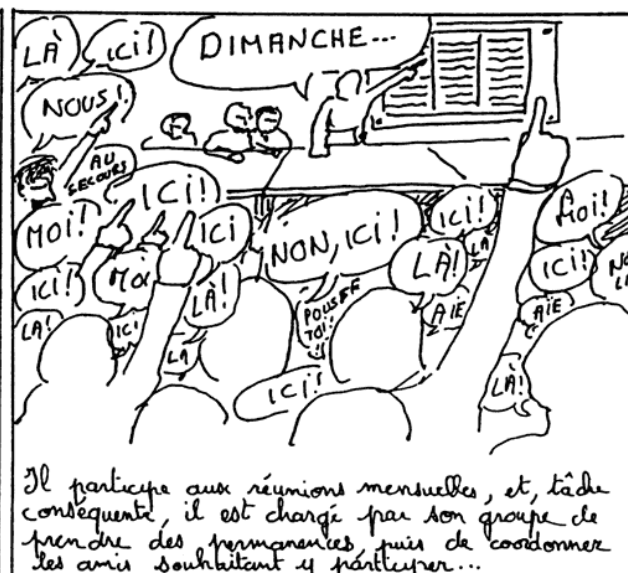 LÀ
ICI!
DIMANCHE...
NOUS!
AU
SECOURS
ICI!
MOI!
ICI
NON, ICI!
ICI!
LÀ
MOI!
ICI!
MOI
LÀ!
LÀ!
ICI!
LA!
ICI
LA
POUSSE
TOI!
AÏE
AÏE
ICI!
LÀ!
Il participe aux réunions mensuelles, et, tâche
conséquente, il est chargé par son groupe de
prendre des permanences, puis de coordonner
les amis souhaitant y participer...